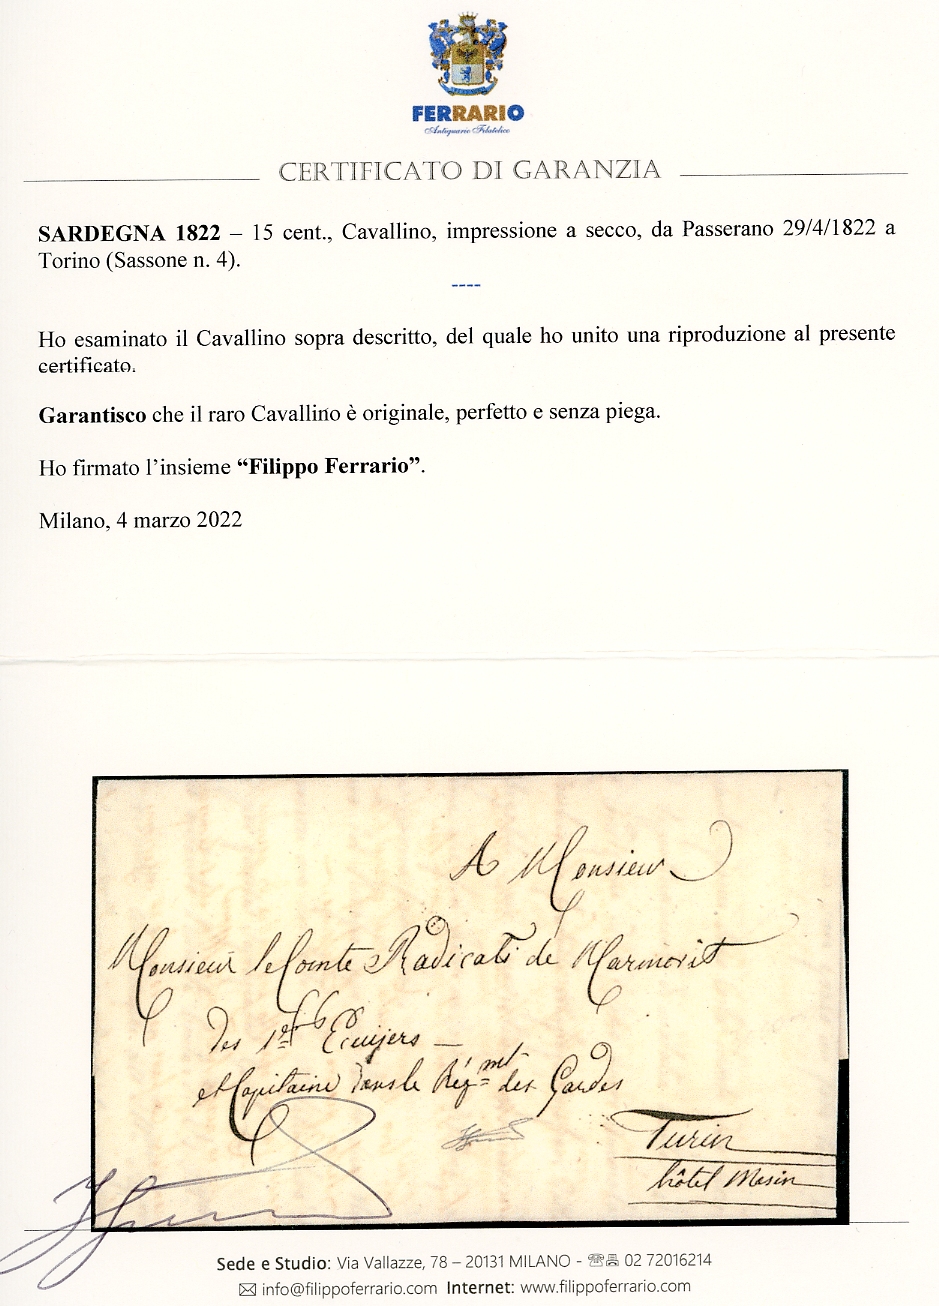 FERRARIO
Antiquario Filatelico
CERTIFICATO DI GARANZIA
SARDEGNA 1822 – 15 cent., Cavallino, impressione a secco, da Passerano 29/4/1822 a
Torino (Sassone n. 4).
----
Ho esaminato il Cavallino sopra descritto, del quale ho unito una riproduzione al presente
certificato.
Garantisco che il raro Cavallino è originale, perfetto e senza piega.
Ho firmato l’insieme “Filippo Ferrario”.
Milano, 4 marzo 2022
A Monsieur
Monsieur le Comte Radicati de Marmorit
des 1ers Ecuijers —
et Capitaine dans le Régmt des Gardes
Turin
hôtel Masin
Sede e Studio: Via Vallazze, 78 – 20131 MILANO - 02 72016214
info@filippoferrario.com Internet: www.filippoferrario.com